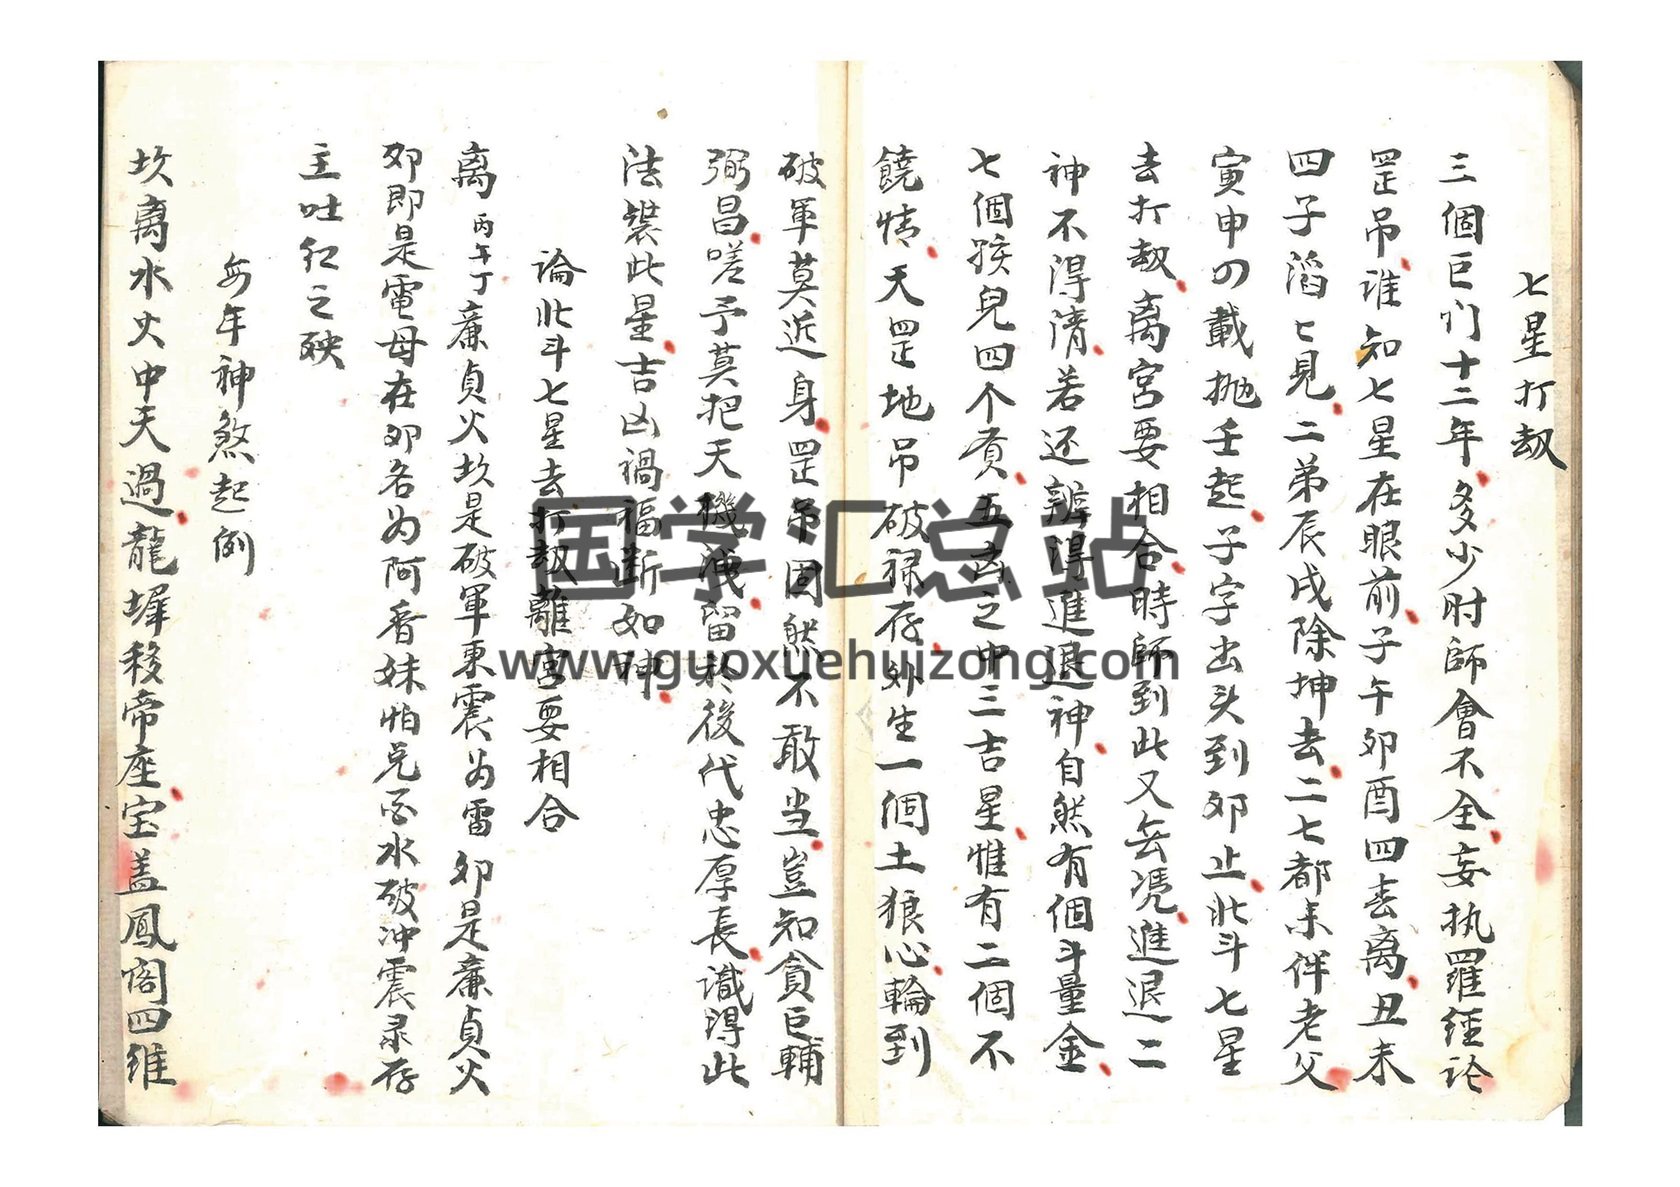 七星打劫
三個巨门十二年多少时師會不全妄执羅經论
罡吊谁知七星在眼前子午卯酉四去离丑未
四子滔匕見二弟辰戌除坤去二七都来伴老父
寅申四載抛壬起子字出头到卯止北斗七星
去打劫离宮要相合時師到此又無凭進退二
神不淂清若还辨淂進退神自然有個斗量金
七個孩兒四个贲五吉之中三吉星惟有二個不
饒情天罡地吊破禄存外生一個土狼心輪到
破軍莫近身罡吊固然不敢当豈知貪巨輔
弼昌嗟予莫把天機洩留於後代忠厚長識淂此
法裝此星吉凶禍福断如神
論北斗七星去打劫離宮要相合
离丙午丁廉貞火坎是破軍東震为雷卯是廉貞火
卯即是電母在卯名为阿香妹怕兑西水破冲震录存
主吐红之殃
每年神煞起例
坎离水火中天過龍墀移帝座宝盖鳳阁四维
国学汇总站
www.guoxuehuizong.com